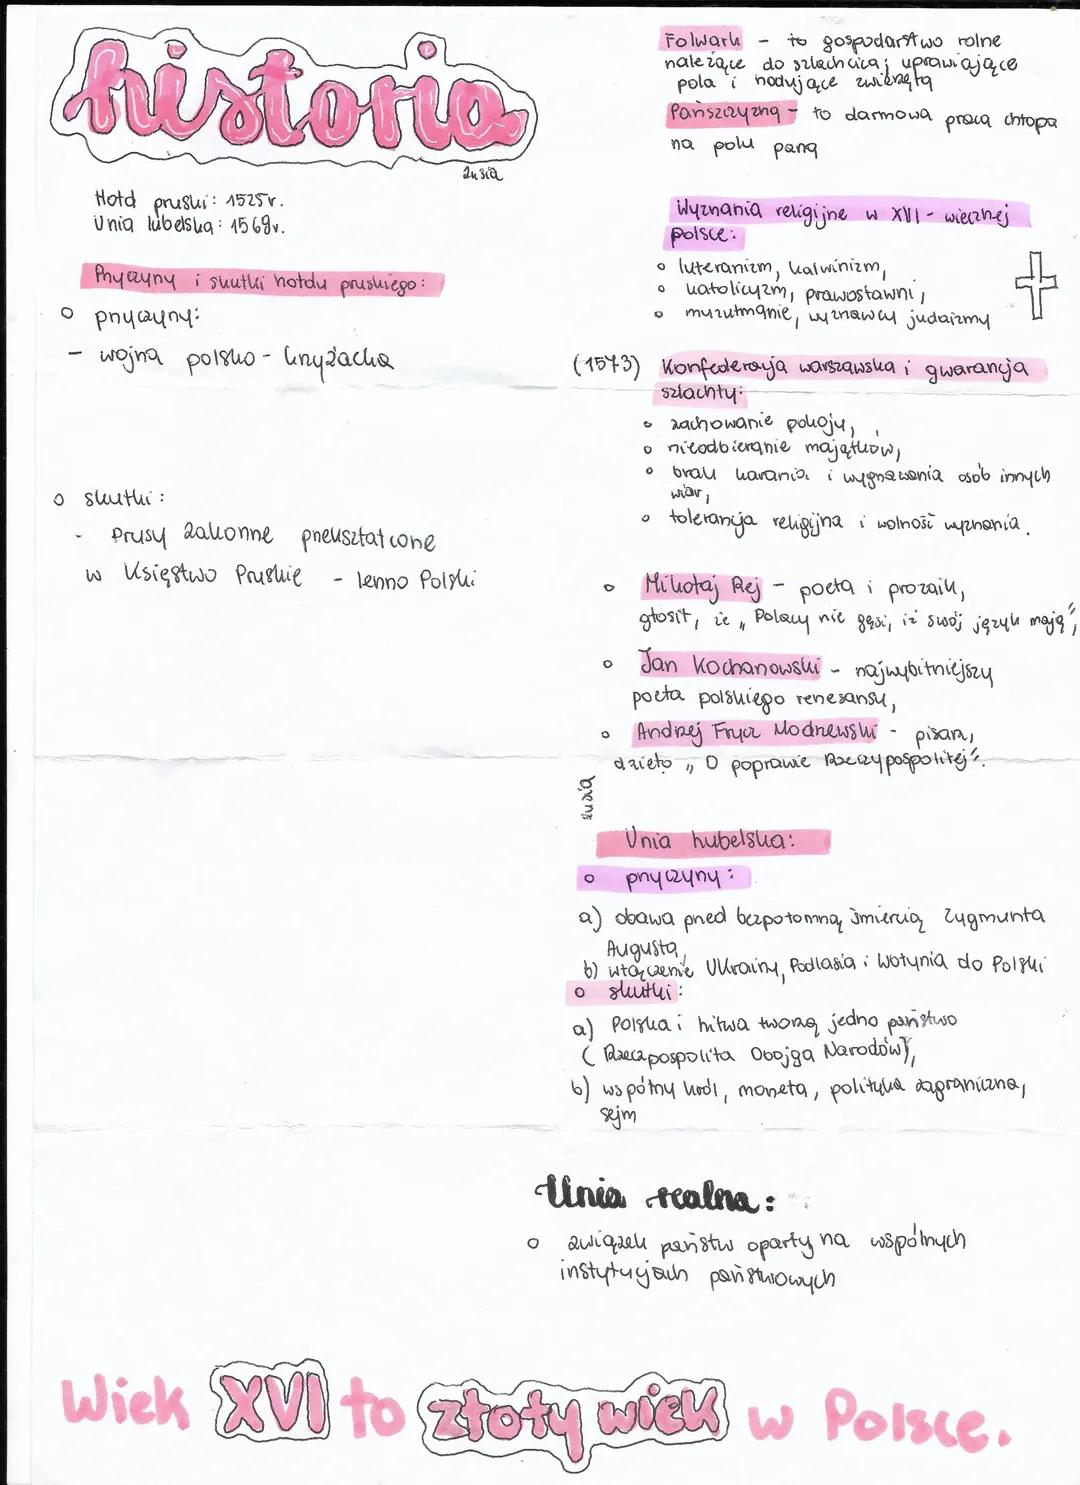 historia
zusia
Hołd pruski: 1525r.
Unia lubelska: 1569r.
Przyczyny i skutki hołdu pruskiego:
przyczyny:
- wojna polsko - krzyżacka
skutki:
- Prusy Zakonne przekształcone
w Księstwo Pruskie - lenno Polski
Folwark - to gospodarstwo rolne
należące do szlachcica; uprawiające
pola i hodujące zwierzęta
Pańszczyzna - to darmowa praca chłopa
na polu pana
Wyznania religijne w XVI - wiecznej
polsce:
luteranizm, kalwinizm,
katolicyzm, prawosławni,
muzułmanie, wyznawcy judaizmy
(1573) Konfederacja warszawska i gwarancja
szlachty:
zachowanie pokoju,
nieodbieranie majątków,
brak karania i wygnawania osób innych
wiar,
tolerancja religijna i wolność wyznania.
Mikołaj Rej - poeta i prozaik,
głosił, że „Polacy nie gęsi, iż swój język mają",
Jan Kochanowski - najwybitniejszy
poeta polskiego renesansu,
Andrzej Frycz Modrzewski - pisarz,
dzieło „O poprawie Rzeczypospolitej".
zusia
Unia lubelska:
przyczyny:
a) obawa przed bezpotomną śmiercią Zygmunta
Augusta,
b) włączenie Ukrainy, Podlasia i Wołynia do Polski
skutki:
a) Polska i Litwa tworzą jedno państwo
(Rzeczpospolita Obojga Narodów),
b) wspólny król, moneta, polityka zagraniczna,
sejm
Unia realna:
związek państw oparty na wspólnych
instytucjach państwowych
Wiek XVI to złoty wiek w Polsce.